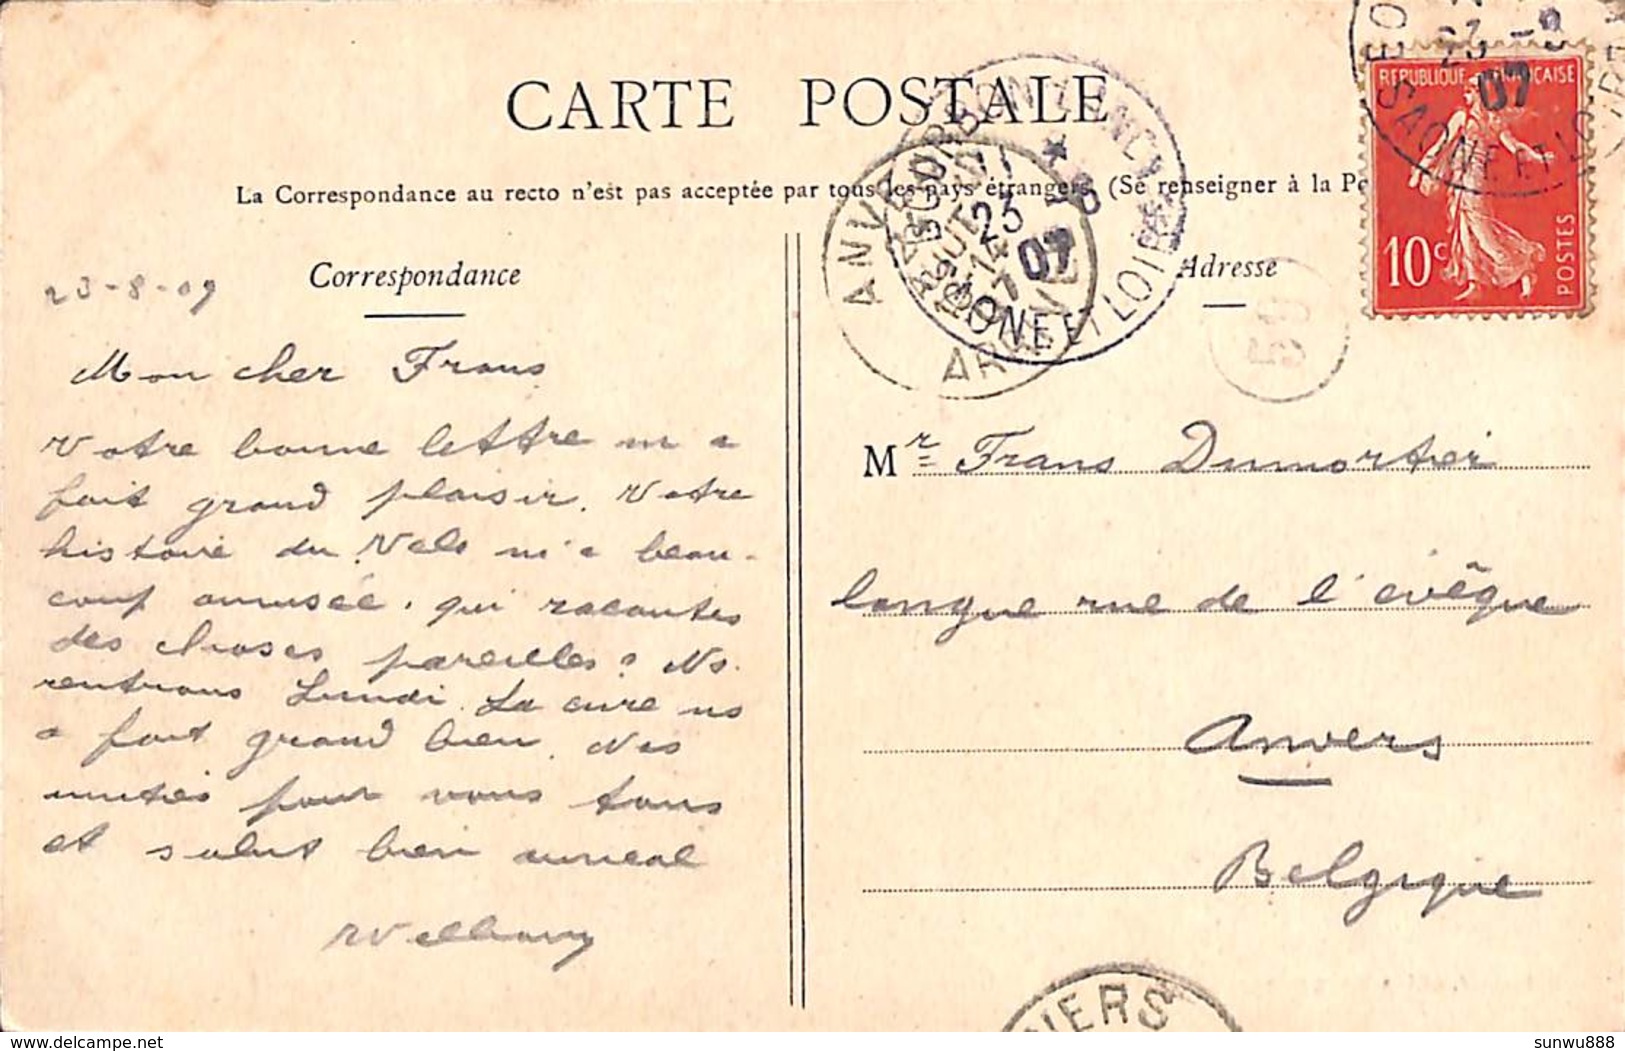 CARTE POSTALE
La Correspondance au recto n'est pas acceptée par tous les pays étrangers (Se renseigner à la
REPUBLIQUE FRANCAISE
10c
POSTES
23 -8
07
SAONE ET LOIRE
BOURBON LANCY
23 -8
07
SAONE ET LOIRE
ANVERS
Correspondance
Adresse
23-8-07
Mon cher Frans
Votre bonne lettre m'a
fait grand plaisir. Votre
histoire du m'a beau-
coup amusée. qui racontes
des choses pareilles? Ns.
rentrons Lundi. La cure ns
a fait grand bien. Mes
amitiés pour vous tous
et salut bien amical
Mr Frans Dumortier
longue rue de l'évêque
Anvers
Belgique
VERS
delcampe.net
sunwu888